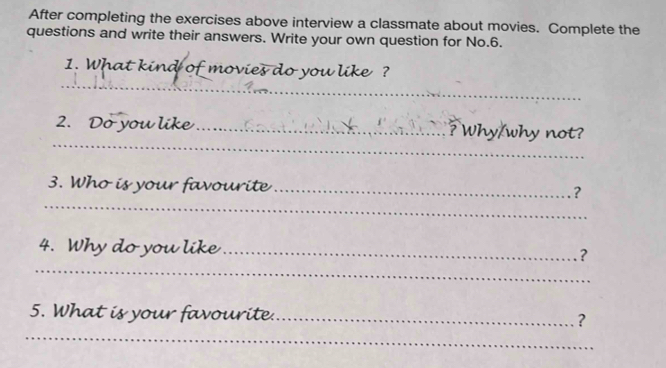 After completing the exercises above interview a classmate about movies. Complete the
questions and write their answers. Write your own question for No.6.
1. What kind of movies do you like ?
2. Do you like ? Why/why not?
3. Who is your favourite ?
4. Why do you like ?
5. What is your favourite ?